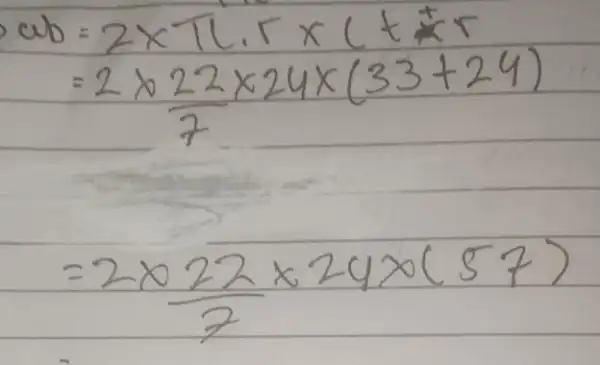 ab = 2 × π . r × ( t + r
= 2 × 22/7 × 24 × (33 + 24)
= 2 × 22/7 × 24 × (57)